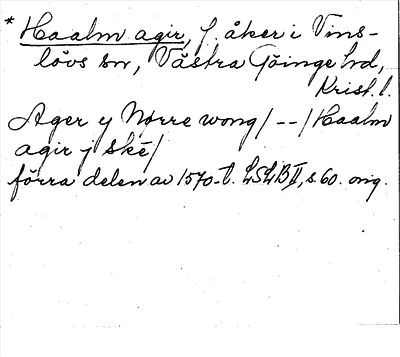 * Haalm agir, f. åker i Vins-
lövs sn, Västra Göinge hd,
Krist. l.
Ager y Nørre wong / -- / Haalm
agir j skē /
förra delen av 1570-t. LSLB II, s. 60. orig.